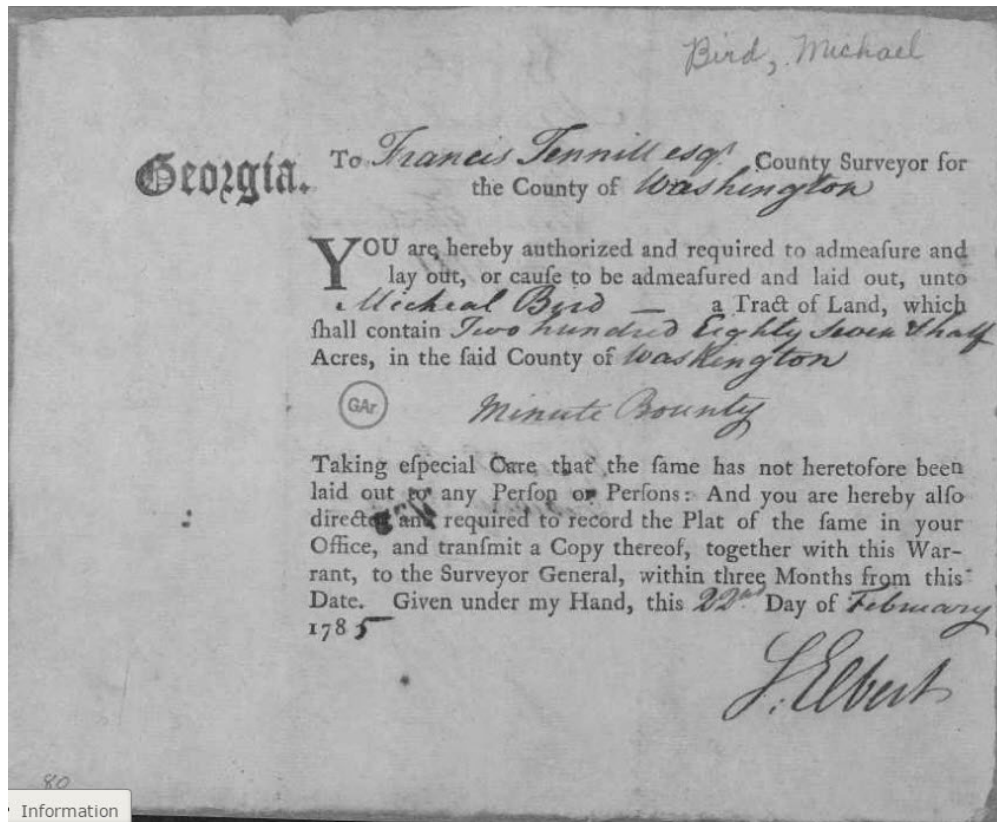 Bird, Michael
Georgia.
To Francis Tennill esqr. County Surveyor for
the County of Washington
YOU are hereby authorized and required to admeaſure and
lay out, or cauſe to be admeaſured and laid out, unto
Micheal Bird — a Tract of Land, which
ſhall contain Two hundred Eighty Seven & half
Acres, in the ſaid County of Washington
GAr
Minute Bounty
Taking eſpecial Care that the ſame has not heretofore been
laid out to any Perſon or Perſons: And you are hereby alſo
directed and required to record the Plat of the ſame in your
Office, and tranſmit a Copy thereof, together with this War-
rant, to the Surveyor General, within three Months from this
Date. Given under my Hand, this 22nd. Day of February
1785
S. Elbert
80
Information